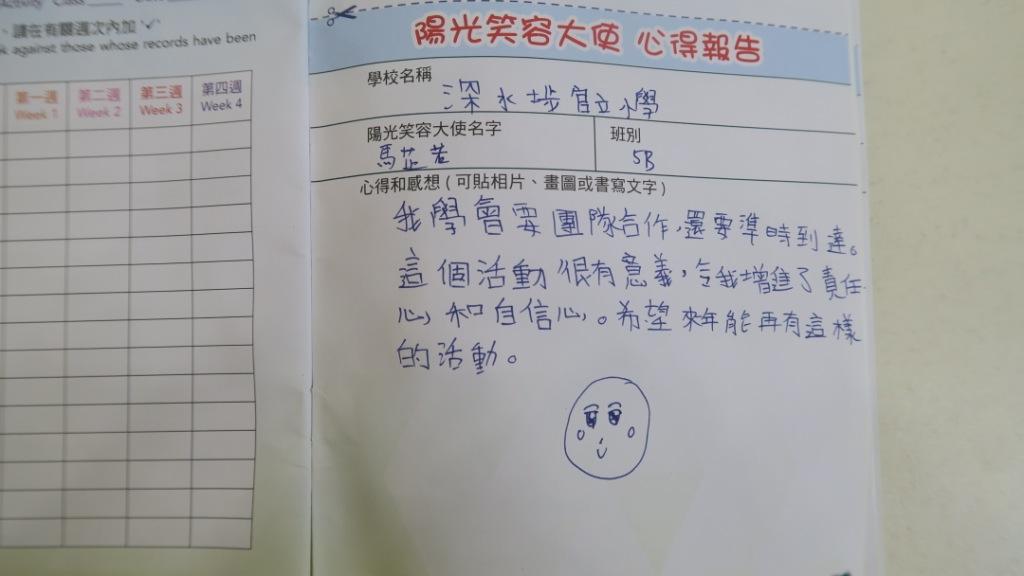 Activity Class
、請在有關週次內加「✓」
k against those whose records have been
第一週 第二週 第三週 第四週
Week 1 Week 2 Week 3 Week 4
陽光笑容大使 心得報告
學校名稱
深水埗官立小學
陽光笑容大使名字 班別
馬芷若 5B
心得和感想(可貼相片、畫圖或書寫文字)
我學會要團隊合作,還要準時到達。
這個活動很有意義,令我增進了責任
心和自信心。希望來年能再有這樣
的活動。